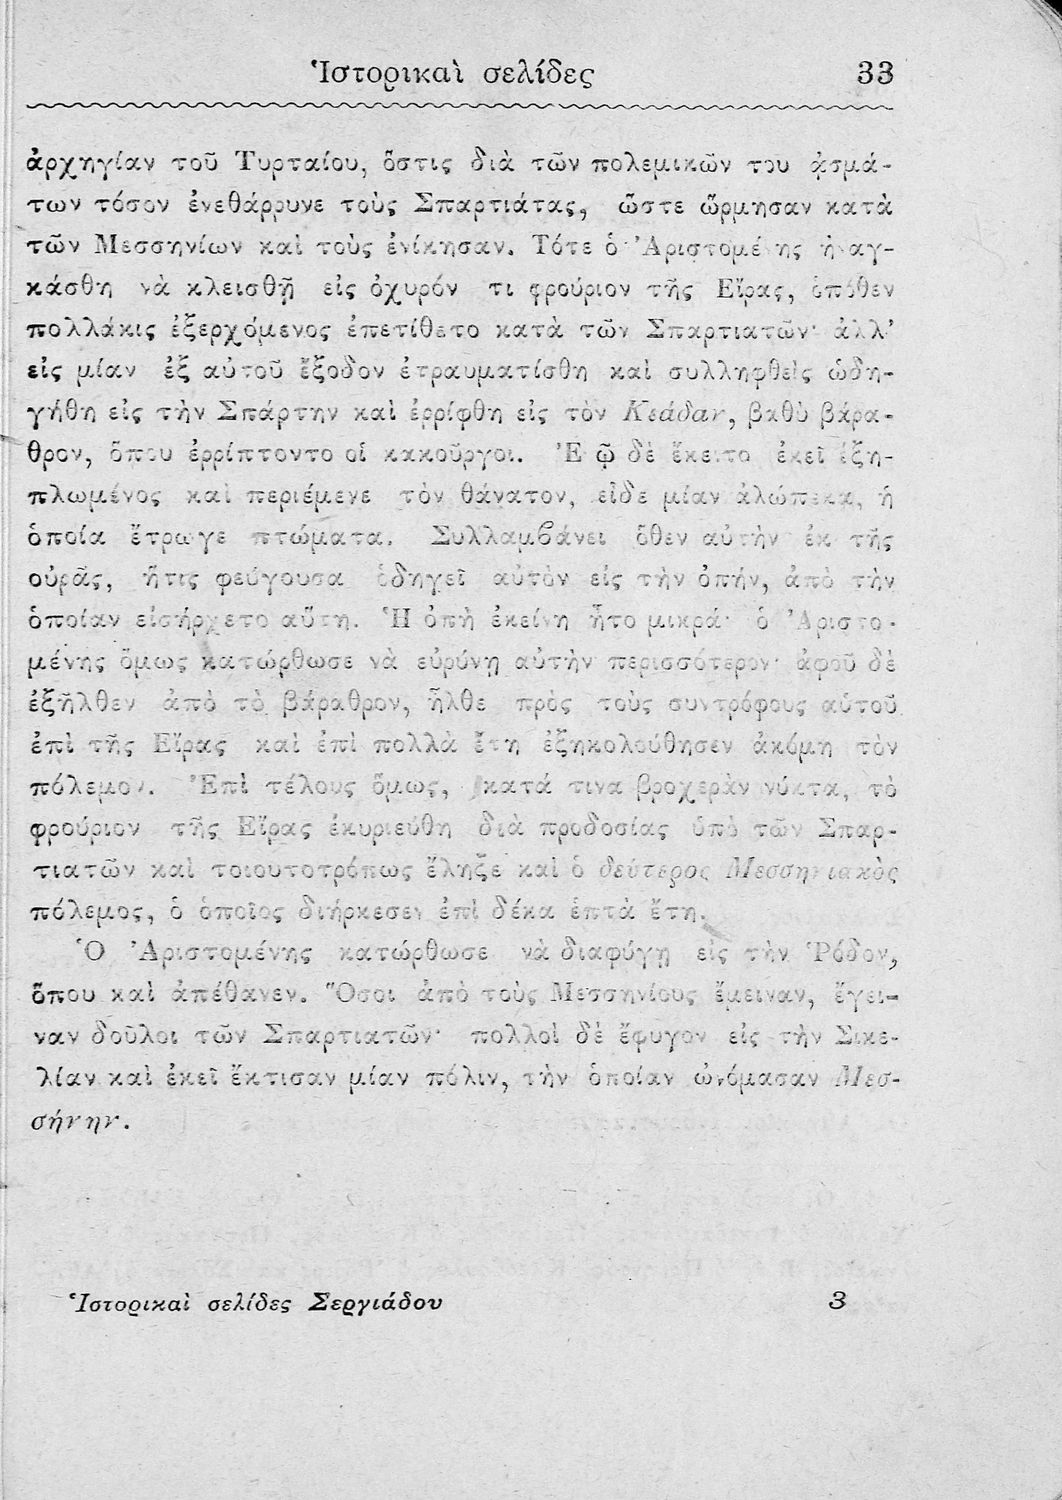 Ἱστορικαὶ σελίδες 33
ἀρχηγίαν τοῦ Τυρταίου, ὅστις διὰ τῶν πολεμικῶν του ᾀσμά-
των τόσον ἐνεθάρρυνε τοὺς Σπαρτιάτας, ὥστε ὥρμησαν κατὰ
τῶν Μεσσηνίων καὶ τοὺς ἐνίκησαν. Τότε ὁ Ἀριστομένης ἠναγ-
κάσθη νὰ κλεισθῇ εἰς ὀχυρόν τι φρούριον τῆς Εἴρας, ὁπόθεν
πολλάκις ἐξερχόμενος ἐπετίθετο κατὰ τῶν Σπαρτιατῶν· ἀλλ’
εἰς μίαν ἐξ αὐτοῦ ἔξοδον ἐτραυματίσθη καὶ συλληφθεὶς ὡδη-
γήθη εἰς τὴν Σπάρτην καὶ ἐρρίφθη εἰς τὸν Κεάδαν, βαθὺ βάρα-
θρον, ὅπου ἐρρίπτοντο οἱ κακοῦργοι. Ἐν ᾧ δὲ ἔκειτο ἐκεῖ ἐξη-
πλωμένος καὶ περιέμενε τὸν θάνατον, εἶδε μίαν ἀλώπεκα, ἡ
ὁποία ἔτρωγε πτώματα. Συλλαμβάνει ὅθεν αὐτὴν ἐκ τῆς
οὐρᾶς, ἥτις φεύγουσα ὁδηγεῖ αὐτὸν εἰς τὴν ὀπήν, ἀπὸ τὴν
ὁποίαν εἰσήρχετο αὕτη. Ἡ ὀπὴ ἐκείνη ἦτο μικρά· ὁ Ἀριστο-
μένης ὅμως κατώρθωσε νὰ εὐρύνῃ αὐτὴν περισσότερον· ἀφοῦ δὲ
ἐξῆλθεν ἀπὸ τὸ βάραθρον, ἦλθε πρὸς τοὺς συντρόφους αὑτοῦ
ἐπὶ τῆς Εἴρας καὶ ἐπὶ πολλὰ ἔτη ἐξηκολούθησεν ἀκόμη τὸν
πόλεμον. Ἐπὶ τέλους ὅμως, κατά τινα βροχερὰν νύκτα, τὸ
φρούριον τῆς Εἴρας ἐκυριεύθη διὰ προδοσίας ὑπὸ τῶν Σπαρ-
τιατῶν καὶ τοιουτοτρόπως ἔληξε καὶ ὁ δεύτερος Μεσσηνιακὸς
πόλεμος, ὁ ὁποῖος διήρκεσεν ἐπὶ δέκα ἑπτὰ ἔτη.
Ὁ Ἀριστομένης κατώρθωσε νὰ διαφύγῃ εἰς τὴν Ῥόδον,
ὅπου καὶ ἀπέθανεν. Ὅσοι ἀπὸ τοὺς Μεσσηνίους ἔμειναν, ἔγει-
ναν δοῦλοι τῶν Σπαρτιατῶν· πολλοὶ δὲ ἔφυγον εἰς τὴν Σικε-
λίαν καὶ ἐκεῖ ἔκτισαν μίαν πόλιν, τὴν ὁποίαν ὠνόμασαν Μεσ-
σήνην.
Ἱστορικαὶ σελίδες Σεργιάδου 3